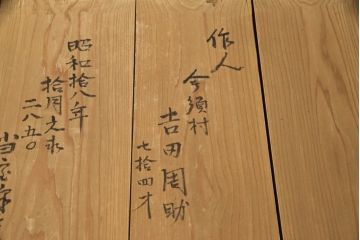 作人
今須村
吉田周助
七拾四才
昭和拾八年
拾月之求
二八五〇
当